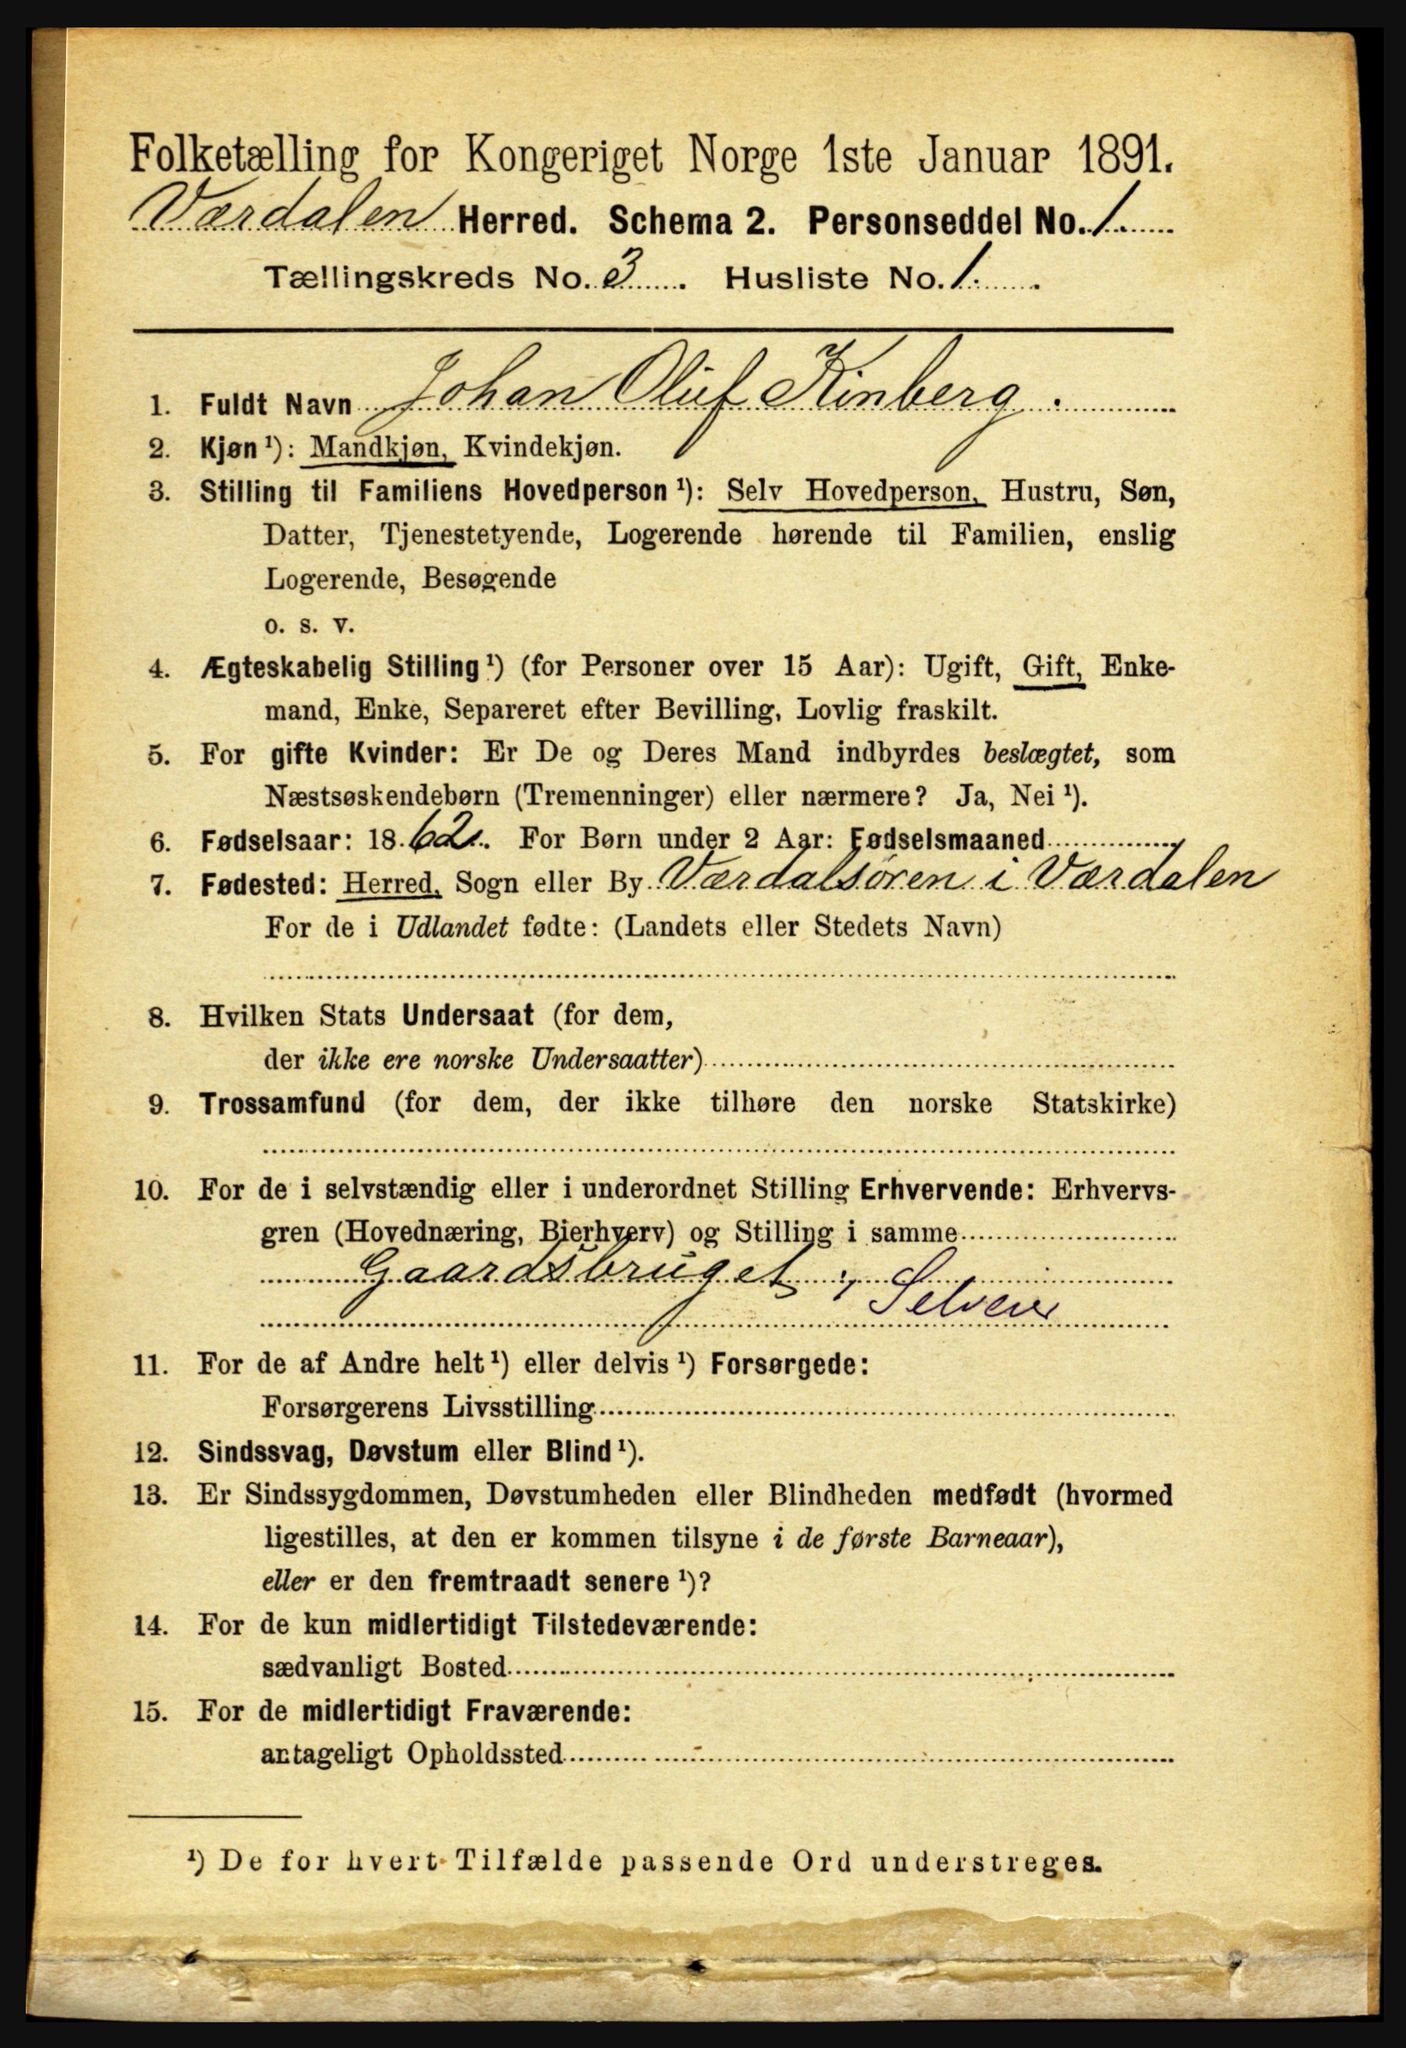 Folketælling for Kongeriget Norge 1ste Januar 1891.
Værdalen Herred. Schema 2. Personseddel No. 1.
Tællingskreds No. 3. Husliste No. 1.
1. Fuldt Navn Johan Oluf Kinberg.
2. Kjøn ¹): Mandkjøn, Kvindekjøn.
3. Stilling til Familiens Hovedperson ¹): Selv Hovedperson, Hustru, Søn,
Datter, Tjenestetyende, Logerende hørende til Familien, enslig
Logerende, Besøgende
o. s. v.
4. Ægteskabelig Stilling ¹) (for Personer over 15 Aar): Ugift, Gift, Enke-
mand, Enke, Separeret efter Bevilling, Lovlig fraskilt.
5. For gifte Kvinder: Er De og Deres Mand indbyrdes beslægtet, som
Næstsøskendebørn (Tremenninger) eller nærmere? Ja, Nei ¹).
6. Fødselsaar: 1862. For Børn under 2 Aar: Fødselsmaaned
7. Fødested: Herred, Sogn eller By Værdalsøren i Værdalen
For de i Udlandet fødte: (Landets eller Stedets Navn)
8. Hvilken Stats Undersaat (for dem,
der ikke ere norske Undersaatter)
9. Trossamfund (for dem, der ikke tilhøre den norske Statskirke)
10. For de i selvstændig eller i underordnet Stilling Erhvervende: Erhvervs-
gren (Hovednæring, Bierhverv) og Stilling i samme
Gaardsbruget;
Selveier
11. For de af Andre helt ¹) eller delvis ¹) Forsørgede:
Forsørgerens Livsstilling
12. Sindssvag, Døvstum eller Blind ¹).
13. Er Sindssygdommen, Døvstumheden eller Blindheden medfødt (hvormed
ligestilles, at den er kommen tilsyne i de første Barneaar),
eller er den fremtraadt senere ¹)?
14. For de kun midlertidigt Tilstedeværende:
sædvanligt Bosted
15. For de midlertidigt Fraværende:
antageligt Opholdssted
¹) De for hvert Tilfælde passende Ord understreges.